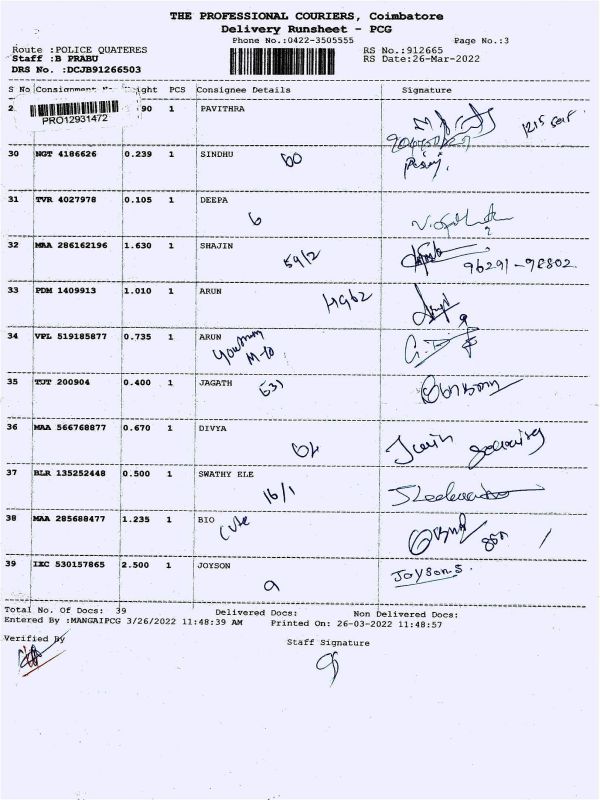 THE PROFESSIONAL COURIERS, Coimbatore
Delivery Runsheet - PCG
Phone No.:0422-3505555 Page No.:3
Route :POLICE QUATERES RS No.:912665
Staff :B PRABU RS Date:26-Mar-2022
DRS No. :DCJB91266503
S No Consignment PCS Consignee Details Signature
90 1 PAVITHRA
PRO12931472
30 NGT 4186626 0.239 1 SINDHU 60
31 TVR 4027978 0.105 1 DEEPA 6
32 MAA 286162196 1.630 1 SHAJIN 59/2
96291-98802
33 PDM 1409913 1.010 1 ARUN H962
34 VPL 519185877 0.735 1 ARUN
M-10
35 TJT 200904 0.400 1 JAGATH 531
36 MAA 566768877 0.670 1 DIVYA
37 BLR 135252448 0.500 1 SWATHY ELE 16/1
38 MAA 285688477 1.235 1 BIO
39 IXC 530157865 2.500 1 JOYSON 9 Joyson.S.
Total No. Of Docs: 39 Delivered Docs: Non Delivered Docs:
Entered By :MANGAIPCG 3/26/2022 11:48:39 AM Printed On: 26-03-2022 11:48:57
Verified By Staff Signature